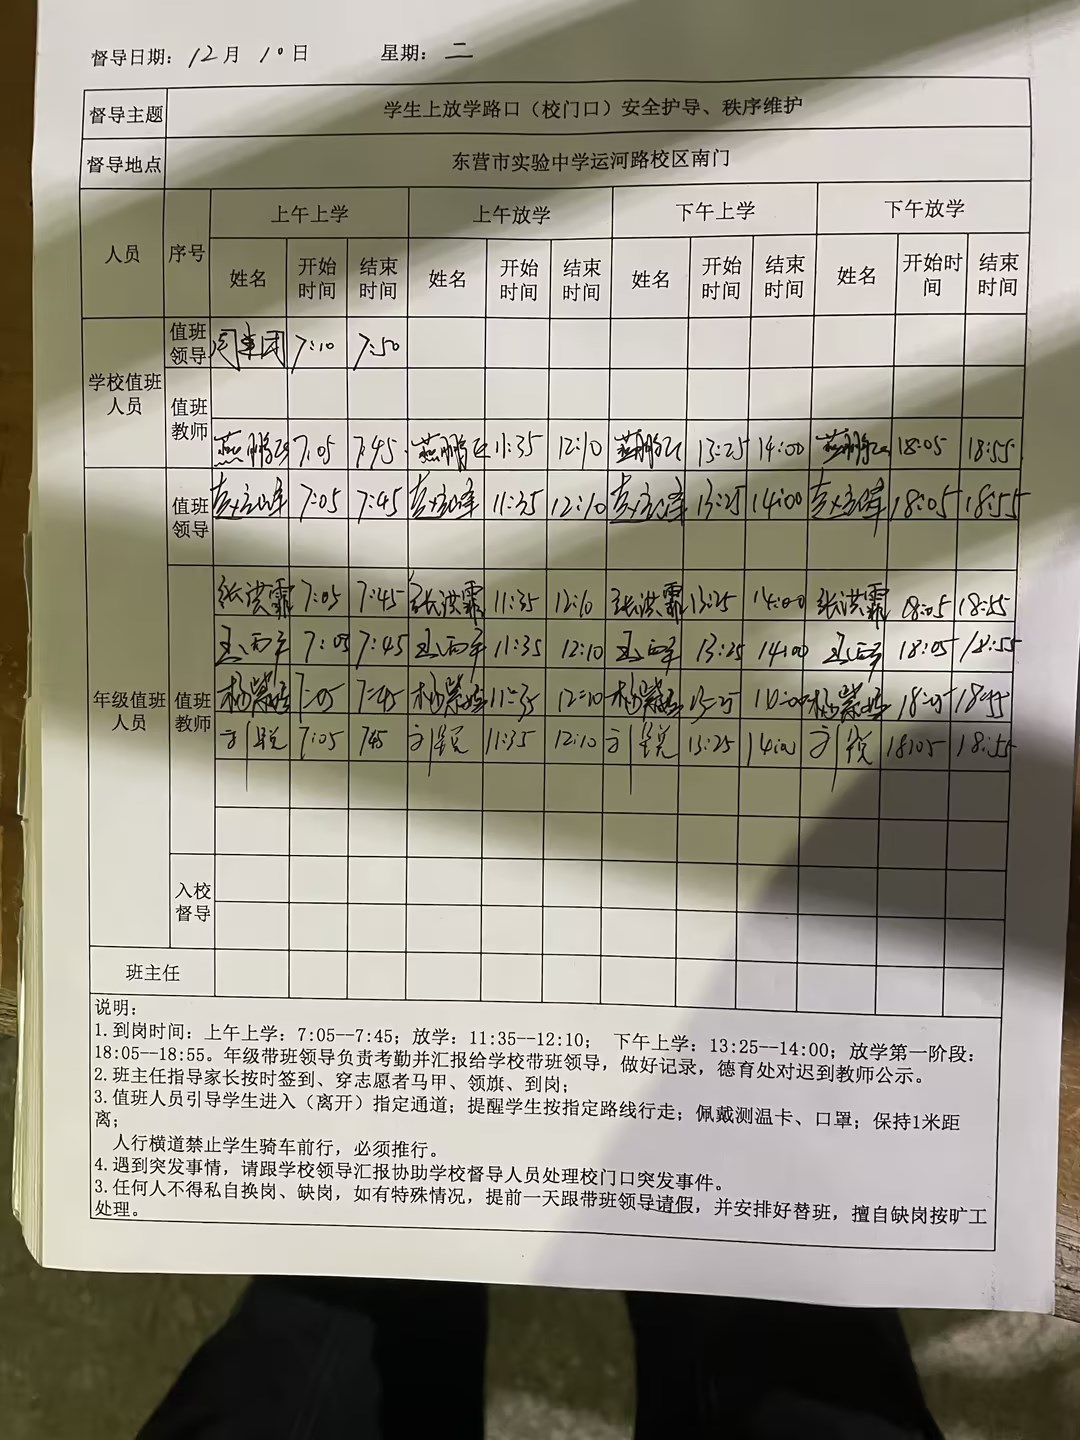 督导日期：12月10日 星期：二
督导主题 学生上放学路口（校门口）安全护导、秩序维护
督导地点 东营市实验中学运河路校区南门
人员 序号 上午上学 上午放学 下午上学 下午放学
姓名 开始时间 结束时间 姓名 开始时间 结束时间 姓名 开始时间 结束时间 姓名 开始时间 结束时间
学校值班人员
值班领导 7:10 7:50
值班教师
7:05 7:45 11:35 12:10 13:25 14:00 18:05 18:55
年级值班人员
值班领导 7:05 7:45 11:35 12:10 13:25 14:00 18:05 18:55
值班教师
张洪霏 7:05 7:45 张洪霏 11:35 12:10 张洪霏 13:25 14:00 张洪霏 18:05 18:55
7:05 7:45 11:35 12:10 13:25 14:00 18:05 18:55
7:05 7:45 11:35 12:10 13:25 14:00 18:05 18:55
刘锐 7:05 7:45 刘锐 11:35 12:10 刘锐 13:25 14:00 刘锐 18:05 18:55
入校督导
班主任
说明：
1.到岗时间：上午上学：7:05--7:45；放学：11:35--12:10； 下午上学：13:25--14:00；放学第一阶段：
18:05--18:55。年级带班领导负责考勤并汇报给学校带班领导，做好记录，德育处对迟到教师公示。
2.班主任指导家长按时签到、穿志愿者马甲、领旗、到岗；
3.值班人员引导学生进入（离开）指定通道；提醒学生按指定路线行走；佩戴测温卡、口罩；保持1米距
离；
人行横道禁止学生骑车前行，必须推行。
4.遇到突发事情，请跟学校领导汇报协助学校督导人员处理校门口突发事件。
3.任何人不得私自换岗、缺岗，如有特殊情况，提前一天跟带班领导请假，并安排好替班，擅自缺岗按旷工
处理。